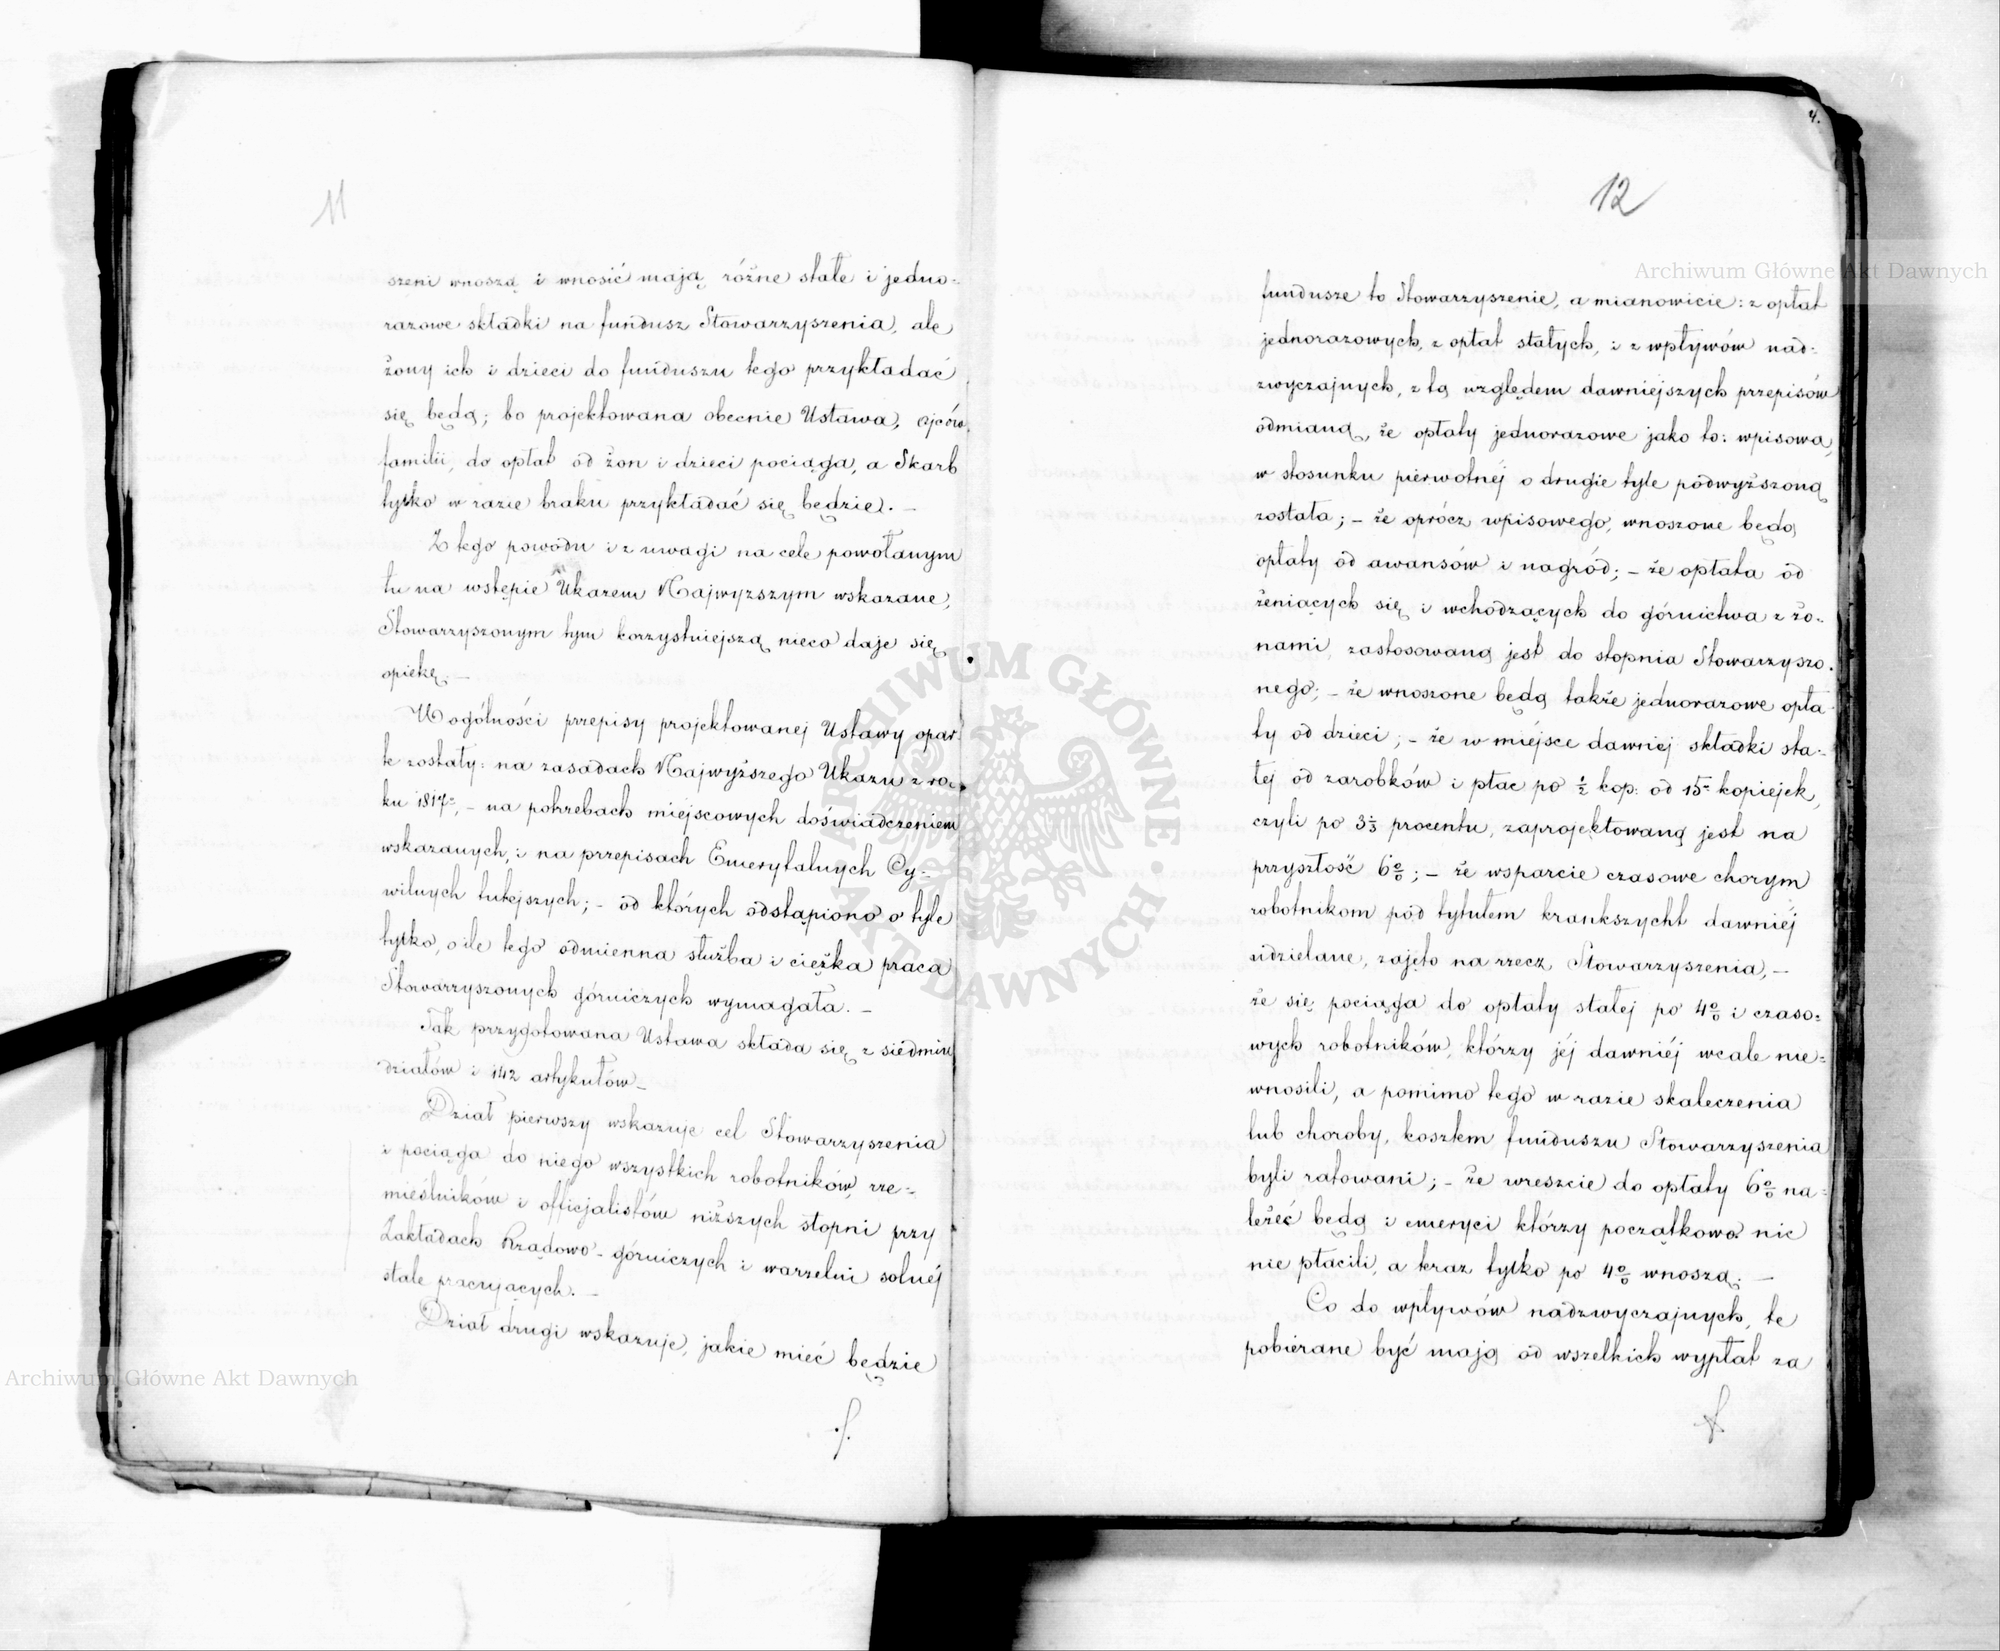 11
szeni wnoszą i wnosić mają różne stałe i jedno-
razowe składki na fundusz Stowarzyszenia, ale
żony ich i dzieci do funduszu tego przykładać
się będą; bo projektowana obecnie Ustawa, ojców
familii, do opłat od żon i dzieci pociąga, a Skarb
tylko w razie braku przykładać się będzie. —
Z tego powodu i z uwagi na cele powołanym
tu na wstępie Ukazem Najwyższym wskazane,
Stowarzyszonym tym korzystniejszą nieco daje się
opiekę. —
W ogólności przepisy projektowanej Ustawy opar-
te zostały: na zasadach Najwyższego Ukazu z ro-
ku 1817, — na potrzebach miejscowych doświadczeniem
wskazanych, i na przepisach Emerytalnych Cy-
wilnych tutejszych; — od których odstąpiono o tyle
tylko, o ile tego odmienna służba i ciężka praca
Stowarzyszonych górniczych wymagała. —
Tak przygotowana Ustawa składa się z siedmiu
działów i 142 artykułów —
Dział pierwszy wskazuje cel Stowarzyszenia
i pociąga do niego wszystkich robotników, rze-
mieślników i officjalistów niższych stopni przy
Zakładach Rządowo-górniczych i warzelni solnéj
stale pracujących. —
Dział drugi wskazuje, jakie mieć będzie
4.
12
fundusze to Stowarzyszenie, a mianowicie: z opłat
jednorazowych, z opłat stałych, i z wpływów nad-
zwyczajnych, z tą względem dawniejszych przepisów
odmianą, że opłaty jednorazowe jako to: wpisowa,
w stosunku pierwotnéj o drugie tyle podwyższoną
została; — że oprócz wpisowego, wnoszone będą
opłaty od awansów i nagród; — że opłata od
żeniących się i wchodzących do górnictwa z żo-
nami, zastosowaną jest do stopnia Stowarzyszo-
nego; — że wnoszone będą także jednorazowe opła-
ty od dzieci; — że w miéjsce dawniéj składki sta-
łej od zarobków i płac po ½ kop: od 15 kopiejek,
czyli po 3⅓ procentu, zaprojektowaną jest na
przyszłość 6%; — że wsparcie czasowe chorym
robotnikom pod tytułem krankszycht dawniéj
udzielane, zajęto na rzecz Stowarzyszenia, —
że się pociąga do opłaty stałej po 4% i czaso-
wych robotników, którzy jéj dawniéj wcale nie-
wnosili, a pomimo tego w razie skaleczenia
lub choroby, kosztem funduszu Stowarzyszenia
byli ratowani; — że wreszcie do opłaty 6% na-
leżéć będą i emeryci którzy początkowo nic
nie płacili, a teraz tylko po 4% wnoszą. —
Co do wpływów nadzwyczajnych, te
pobiérane być mają od wszelkich wypłat za
Archiwum Główne Akt Dawnych
Archiwum Główne Akt Dawnych
ARCHIWUM GŁÓWNE AKT DAWNYCH